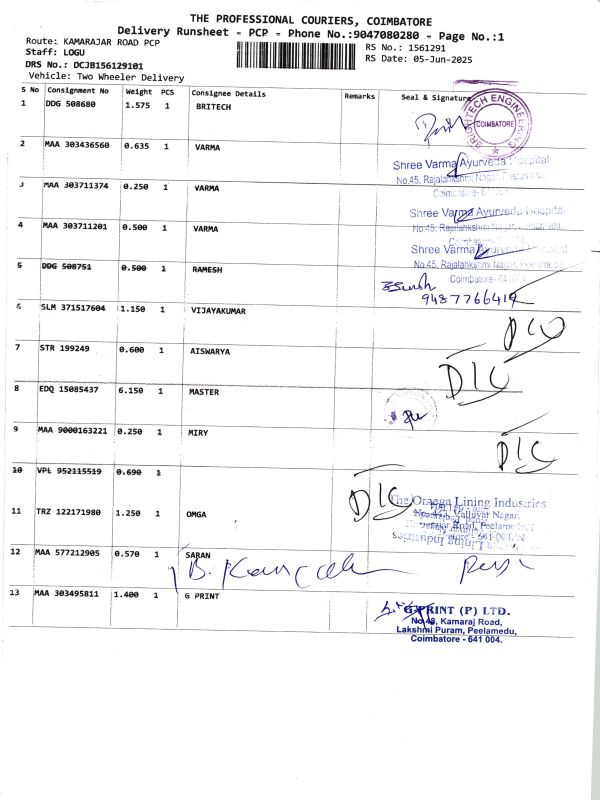 THE PROFESSIONAL COURIERS, COIMBATORE
Delivery Runsheet - PCP - Phone No.:9047080280 - Page No.:1
Route: KAMARAJAR ROAD PCP
RS No.: 1561291
Staff: LOGU
RS Date: 05-Jun-2025
DRS No.: DCJB156129101
Vehicle: Two Wheeler Delivery
S No Consignment No Weight PCS Consignee Details Remarks Seal & Signature
1 DDG 508680 1.575 1 BRITECH
BRIGHTECH ENGINEERING
COIMBATORE
2 MAA 303436560 0.635 1 VARMA
Shree Varma Ayurveda Hospital
No.45, Rajalahkshmi Nagar,
3 MAA 303711374 0.250 1 VARMA
Shree Varma Ayurveda Hospital
No.45, Rajalahkshmi Nagar,
4 MAA 303711201 0.500 1 VARMA
Shree Varma Ayurveda Hospital
No.45, Rajalahkshmi Nagar, Peelamedu,
Coimbatore-
5 DDG 508751 0.500 1 RAMESH
9487766412
6 SLM 371517604 1.150 1 VIJAYAKUMAR
7 STR 199249 0.600 1 AISWARYA
D/C
8 EDQ 15085437 6.150 1 MASTER
9 MAA 9000163221 0.250 1 MIRY
D/C
10 VPL 952115519 0.690 1
D/C
11 TRZ 122171980 1.250 1 OMGA
The Omega Lining Industries
Valluvar Nagar,
12 MAA 577212905 0.570 1 SARAN
13 MAA 303495811 1.400 1 G PRINT
G-PRINT (P) LTD.
No.48, Kamaraj Road,
Lakshmi Puram, Peelamedu,
Coimbatore - 641 004.